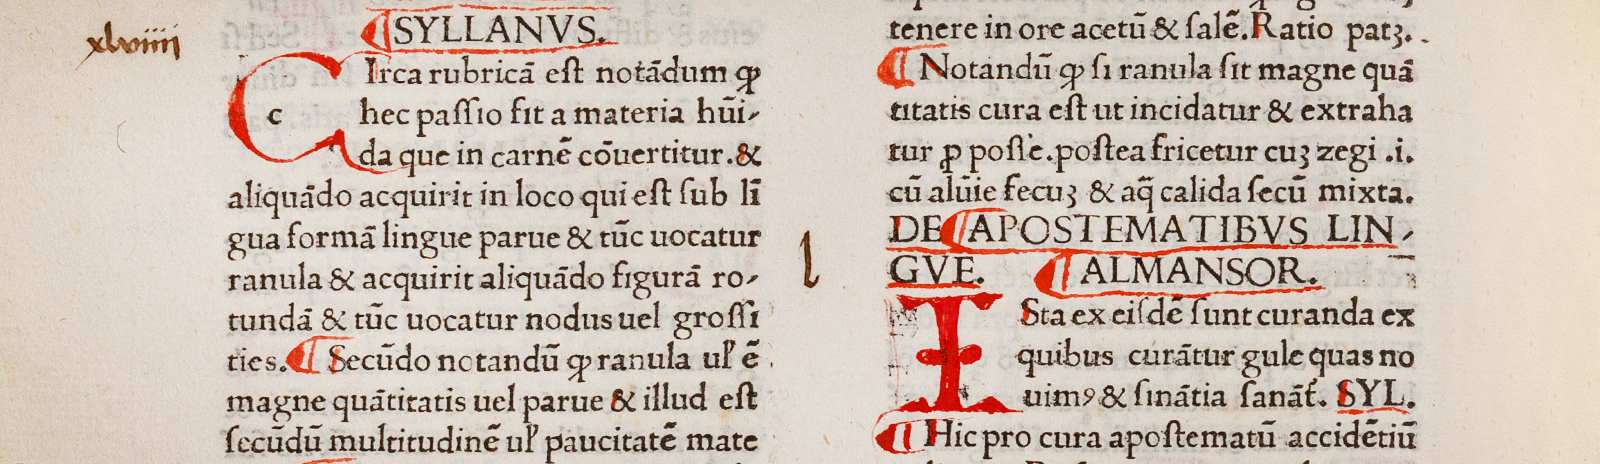 xlviiii
¶ SYLLANVS.
CIrca rubricā eſt notādum ꝙ
c
hec paſſio fit a materia hūi-
da que in carnē cōuertitur. &
aliquādo acquirit in loco qui eſt ſub lī
gua formā lingue parue & tūc uocatur
ranula & acquirit aliquādo figurā ro-
tundā & tūc uocatur nodus uel groſſi
ties. ¶ Secūdo notandū ꝙ ranula uꝉ ē
magne quātitatis uel parue & illud eſt
ſecūdū multitudinē uꝉ paucitatē mate
l
tenere in ore acetū & ſalē. Ratio patꝫ.
¶ Notandū ꝙ ſi ranula ſit magne quā
titatis cura eſt ut incidatur & extraha
tur ꝑ poſſe. poſtea fricetur cuꝫ zegi .i.
cū alūie fecuꝫ & aq̄ calida ſecū mixta.
DE ¶ APOSTEMATIBVS LIN-
GVE. ¶ ALMANSOR.
ISta ex eiſdē ſunt curanda ex
quibus curātur gule quas no
uimꝰ & ſinātia ſanāt̄. SYL.
¶ Hic pro cura apoſtematū accidētiū